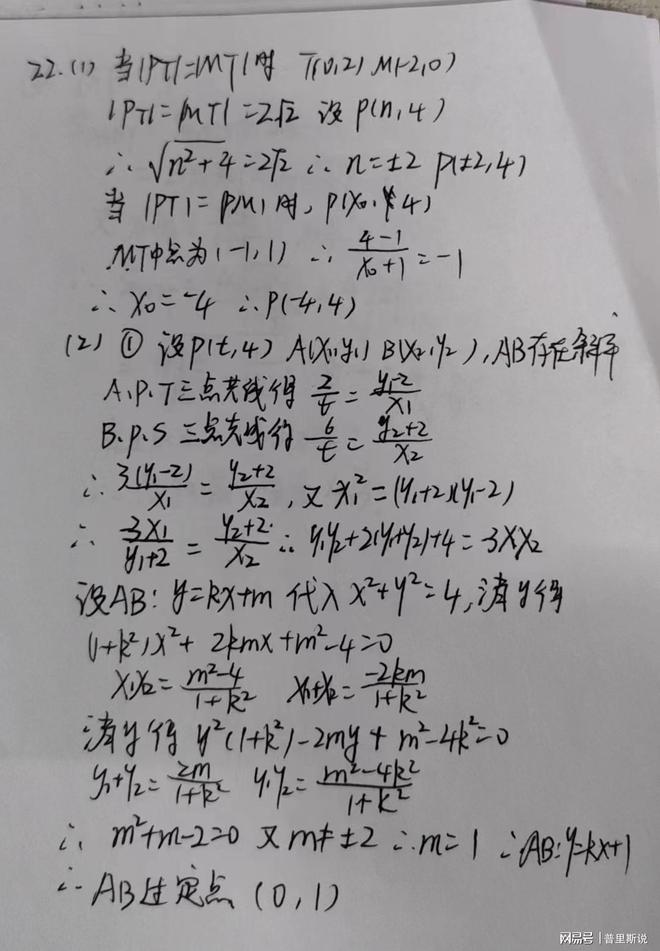 22.(1) 当|PT|=|MT|时 T(0,2) M(-2,0)
|PT|=|MT|=2√2 设P(n,4)
∴ √(n²+4)=2√2 ∴ n=±2 P(±2,4)
当 |PT|=|PM|时, P(x₀,4)
MT中点为(-1,1) ∴ (4-1)/(x₀+1)=-1
∴ x₀=-4 ∴P(-4,4)
(2) ① 设P(t,4) A(x₁,y₁) B(x₂,y₂), AB存在斜率
A.P.T三点共线得 2/t=(y₁-2)/x₁
B.P.S 三点共线得 6/t=(y₂+2)/x₂
∴ 3(y₁-2)/x₁=(y₂+2)/x₂, 又 x₁²=(y₁+2)(y₁-2)
∴ -3x₁/(y₁+2)=(y₂+2)/x₂ ∴ y₁y₂+2(y₁+y₂)+4=3x₁x₂
设AB: y=kx+m 代入 x²+y²=4, 消y得
(1+k²)x²+2kmx+m²-4=0
x₁x₂=(m²-4)/(1+k²) x₁+x₂=-2km/(1+k²)
消y得 y²(1+k²)-2my+m²-4k²=0
y₁+y₂=2m/(1+k²) y₁y₂=(m²-4k²)/(1+k²)
∴ m²+m-2=0 又m≠±2 ∴m=1 ∴AB:y=kx+1
∴ AB过定点 (0,1)
网易号 | 普里斯说